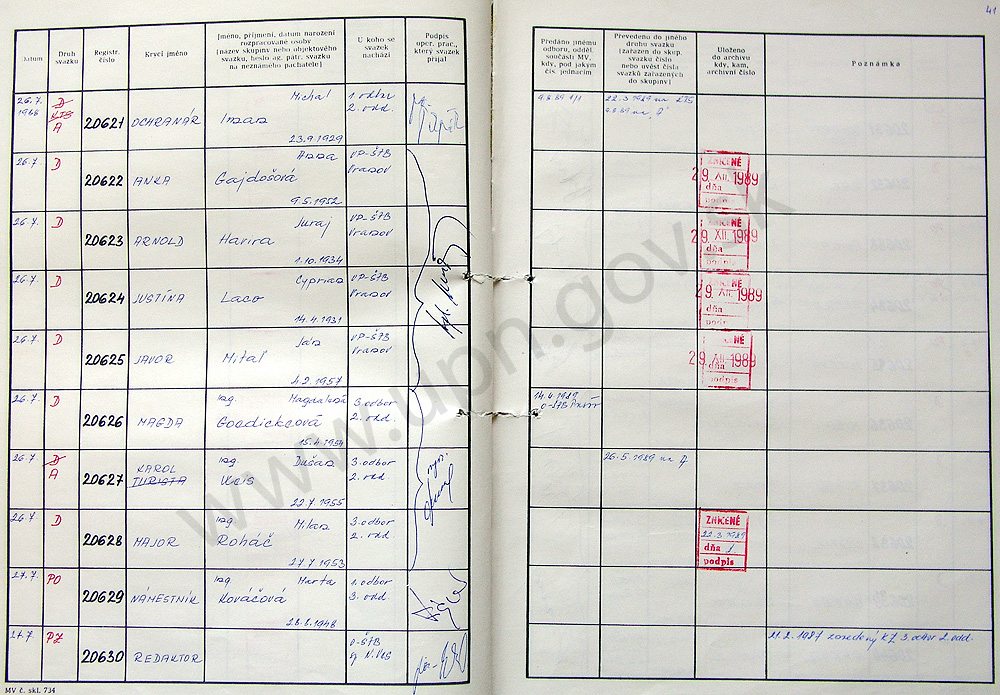 41
Datum
Druh
svazku
Registr.
číslo
Krycí jméno
Jméno, příjmení, datum narození
rozpracované osoby
[název skupiny nebo objektového
svazku, heslo ag. pátr. svazku
na neznámého pachatele]
U koho se
svazek
nachází
Podpis
oper. prac.,
který svazek
přijal
Předáno jinému
odboru, odděl.
součásti MV,
kdy, pod jakým
čís. jednacím
Převedeno do jiného
druhu svazku
[zařazen do skup.
svazku číslo
nebo uvést čísla
svazků zařazených
do skupiny]
Uloženo
do archivu
kdy, kam,
archivní číslo
Poznámka
26.7.
1988
D
KTS
A
20621
OCHRANÁR
Michal
Iman
23.9.1929
1. odbor
2. odd.
9.8.89
22.3.1989 na KTS
9.8.89 na "A"
26.7.
D
20622
ANKA
Anna
Gajdošová
9.5.1952
VP-ŠTB
Vranov
ZNIČENÉ
29. XII. 1989
dňa
podpis
26.7.
D
20623
ARNOLD
Juraj
Havira
1.10.1934
VP-ŠTB
Vranov
ZNIČENÉ
29. XII. 1989
dňa
podpis
26.7.
D
20624
JUSTÍNA
Cyprian
Laco
14.4.1931
VP-ŠTB
Vranov
ZNIČENÉ
29. XII. 1989
dňa
podpis
26.7.
D
20625
JAVOR
Ján
Mitaľ
4.2.1957
VP-ŠTB
Vranov
ZNIČENÉ
29. XII. 1989
dňa
podpis
26.7.
D
20626
MAGDA
Ing. Magdaléna
Goedickeová
15.4.1954
3. odbor
2. odd.
14.4.1989
26.7.
D
A
20627
KAROL
TURISTA
Ing. Dušan
22.7.1955
3. odbor
2. odd.
26.5.1989 na "A"
26.7
D
20628
MAJOR
Ing. Milan
Roháč
27.7.1953
3. odbor
2. odd.
ZNIČENÉ
22.3.1989
dňa
podpis
27.7.
PO
20629
NÁMESTNÍK
Ing. Marta
Kováčová
28.8.1948
1. odbor
3. odd
27.7.
PZ
20630
REDAKTOR
O-ŠTB
Sp. N. Ves
21.2.1987 zavedený KZ 3. odbor 2. odd.
MV č. skl. 734
www.upn.gov.sk